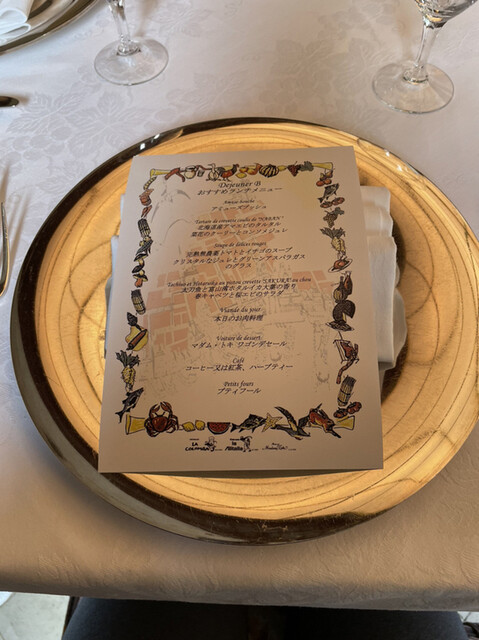 Dejeuner B
おすすめランチメニュー
Amuse bouche
アミューズブッシュ
北海道産アマエビのタルタル
菜花のクーリーとロンブメジュレ
Soupe de délices rouges
完熟無農薬トマトとイチゴのスープ
クリスタルなジュレとグリーンアスパラガス
のグラス
太刀魚と富山湾ホタルイカ大葉の香り
春キャベツと桜エビのサラダ
Viande du jour
本日のお肉料理
Voiture de dessert
マダム・トキ ワゴンデセール
Café
コーヒー又は紅茶、ハーブティー
Petits fours
プティフール
LA